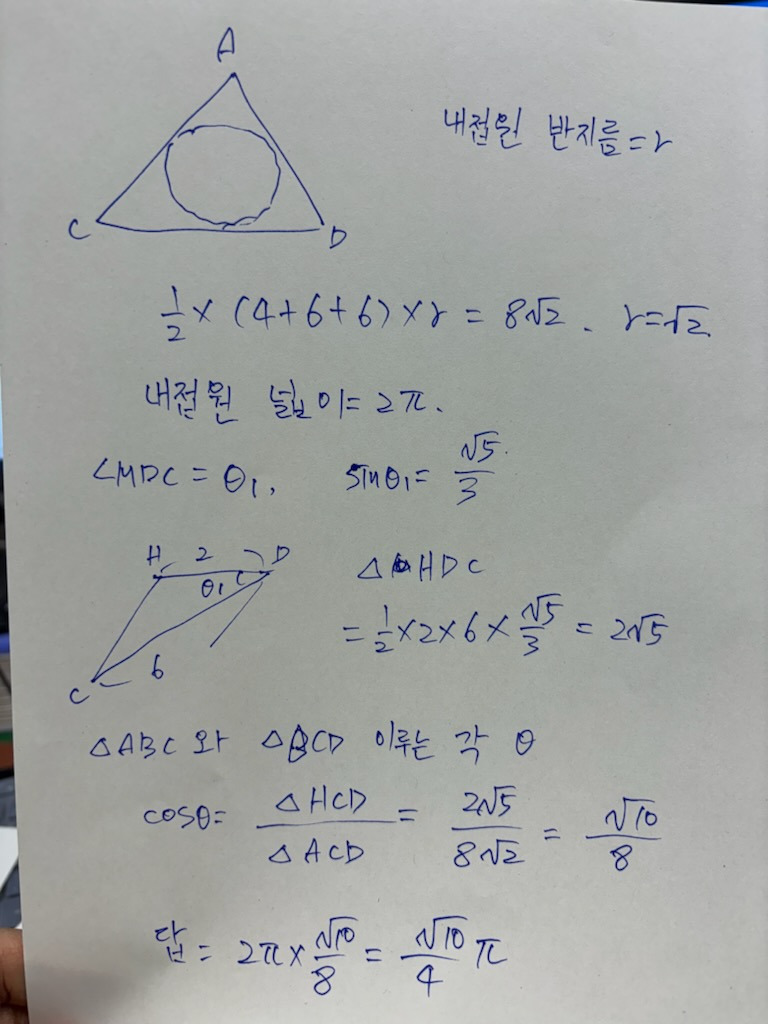 A
C
D
내접원 반지름=r
1/2 × (4+6+6) × r = 8√2. r=√2.
내접원 넓이= 2π.
∠MDC = θ₁, sinθ₁= √5/3
H 2 D
θ₁
6
C
△HDC
= 1/2 × 2 × 6 × √5/3 = 2√5
△ABC 와 △BCD 이루는 각 θ
cosθ= △HCD/△ACD = 2√5/8√2 = √10/8
답 = 2π × √10/8 = √10/4 π